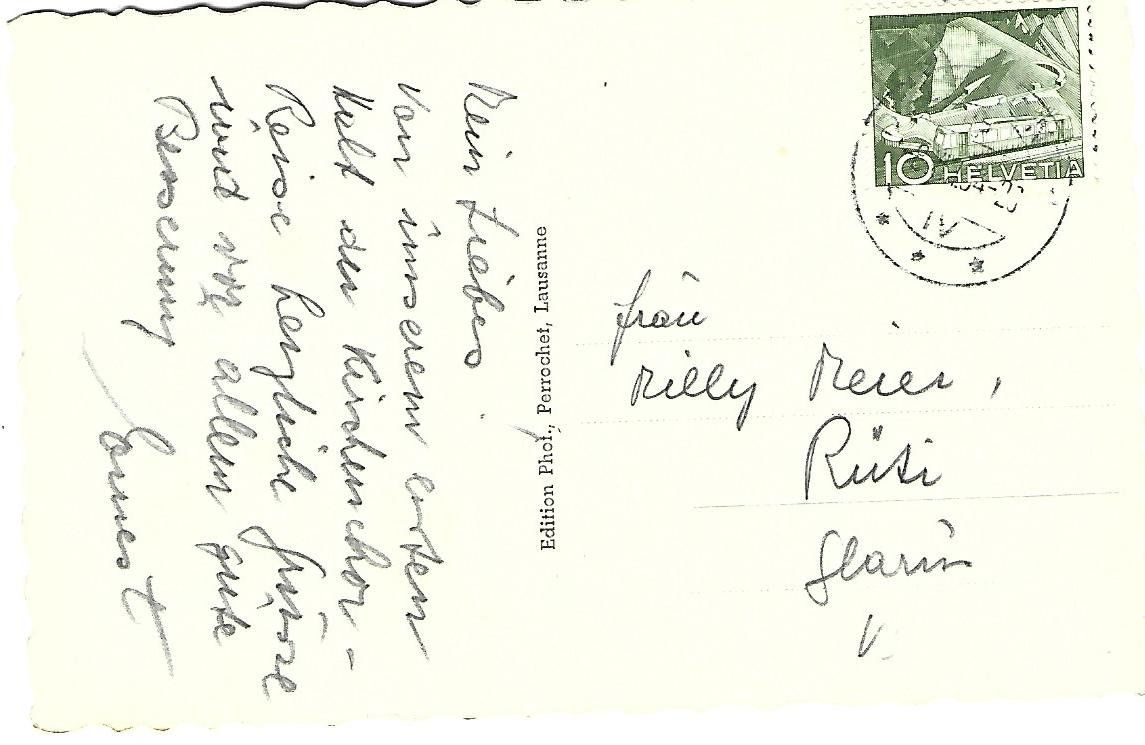 Mein Liebes.
Von unserem ersten
Halt der Kirchenchor-
Reise herzliche Grüsse
und vor allem gute
Besserung
Ernest
Edition Phot., Perrochet, Lausanne
10 HELVETIA
IV
Frau
Milly Meier,
Rüti
Glarus